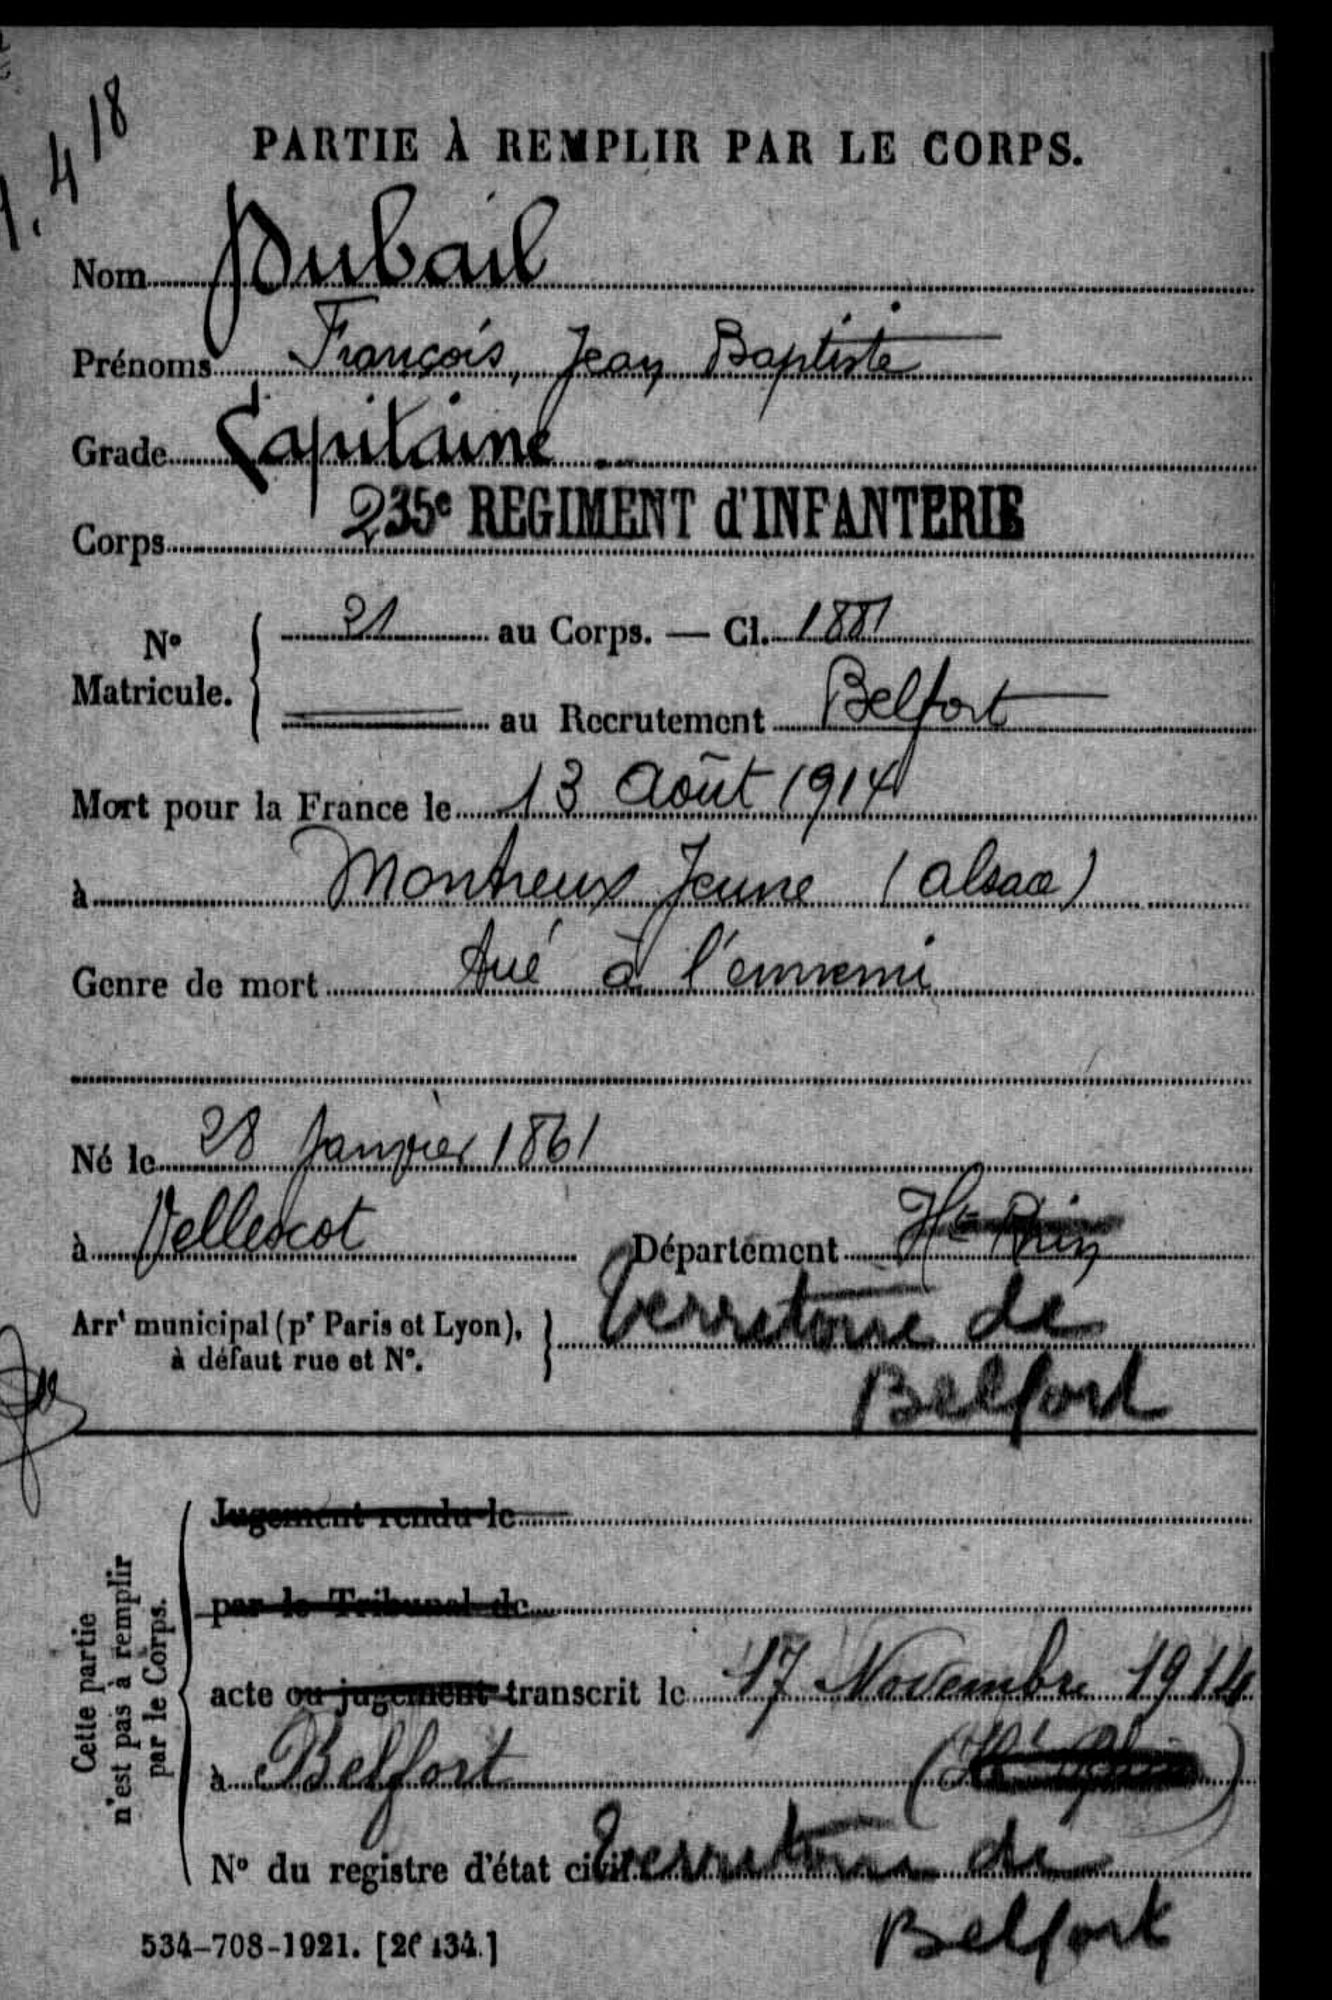 4 18
PARTIE À REMPLIR PAR LE CORPS.
Nom Dubail
Prénoms François, Jean Baptiste
Grade Capitaine
Corps 235e REGIMENT d'INFANTERIE
N° Matricule. { 21 au Corps. — Cl. 1881
au Recrutement Belfort
Mort pour la France le 13 Août 1914
à Montreux Jeune (Alsace)
Genre de mort tué à l'ennemi
Né le 28 Janvier 1861
à Vellescot Département Ht Rhin
Arrt municipal (pr Paris et Lyon), à défaut rue et N°. } Territoire de
Belfort
Cette partie n'est pas à remplir par le Corps.
Jugement rendu le
par le Tribunal de
acte ou jugement transcrit le 17 Novembre 1914
à Belfort (Ht Rhin)
N° du registre d'état civil Territoire de
Belfort
534-708-1921. [26134.]